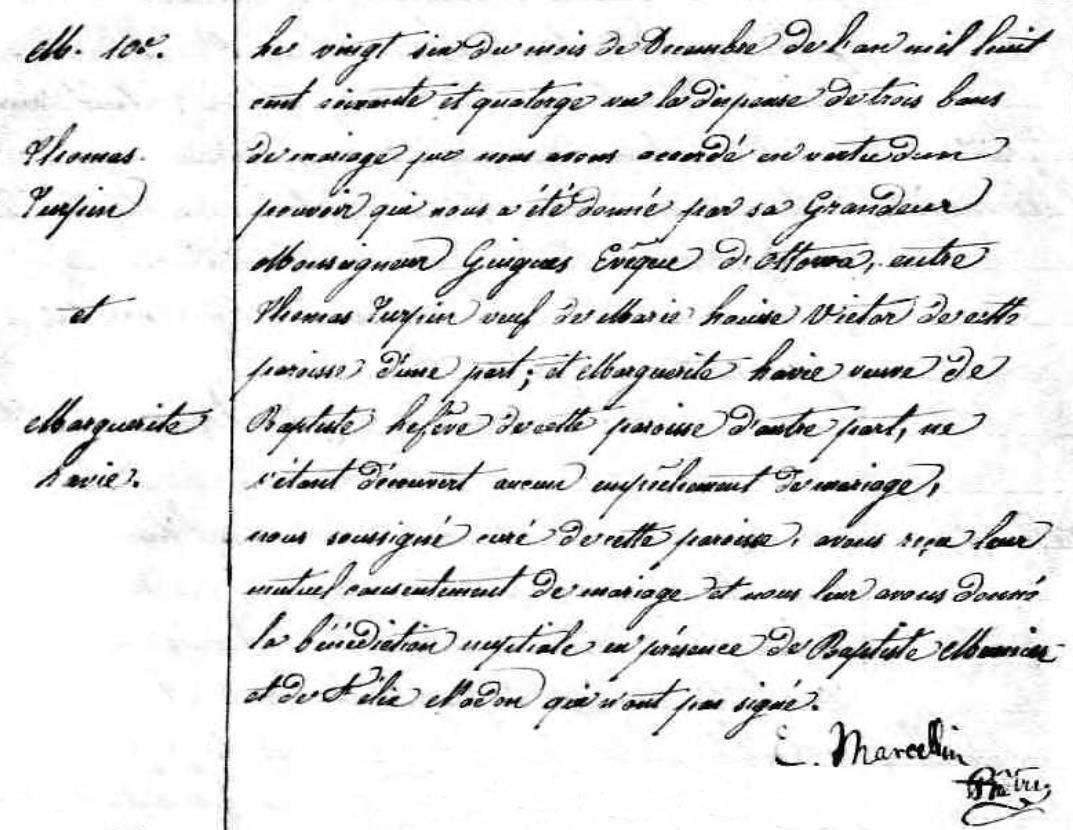 M. 10e.
Thomas
Turpin
et
Marguerite
Lavie.
Le vingt six du mois de Decembre de l'an mil huit
cent soixante et quatorze vu la dispense de trois bans
de mariage que nous avons accordé en vertu d'un
pouvoir qui nous a été donné par sa Grandeur
Monseigneur Guigues Evêque d'Ottawa, entre
Thomas Turpin veuf de Marie Louise Victor de cette
paroisse d'une part; et Marguerite Lavie veuve de
Baptiste Lefêve de cette paroisse d'autre part, ne
s'étant découvert aucun empêchement de mariage,
nous soussigné curé de cette paroisse, avons reçu leur
mutuel consentement de mariage et nous leur avons donné
la bénédiction nuptiale en présence de Baptiste
et de Félix Nadon qui n'ont pas signé.
E. Marcellin
Ptre